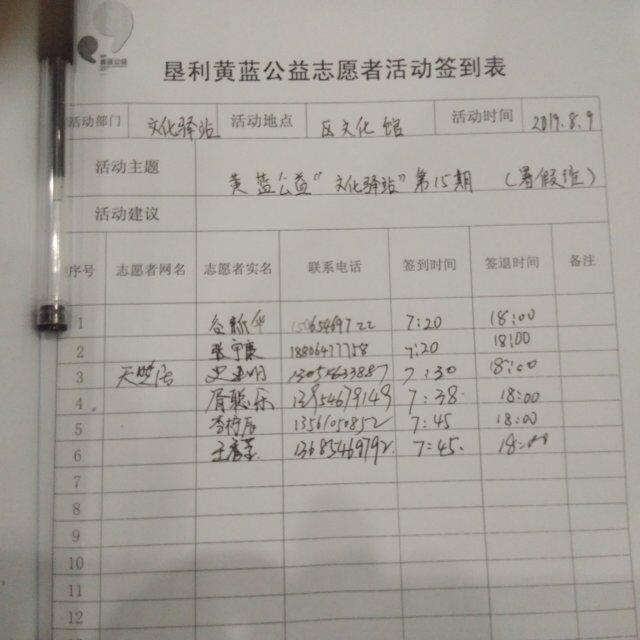 黄蓝公益
垦利黄蓝公益志愿者活动签到表
活动部门 文化驿站 活动地点 区文化馆 活动时间 2019.8.9
活动主题 黄蓝公益"文化驿站"第15期 (暑假班)
活动建议
序号 志愿者网名 志愿者实名 联系电话 签到时间 签退时间 备注
1 7:20 18:00
2 18806477758 7:20 18:00
3 13054633887 7:30 18:00
4 13954679149 7:38 18:00
5 13561050852 7:45 18:00
6 13685469792 7:45. 18:00
7
8
9
10
11
12